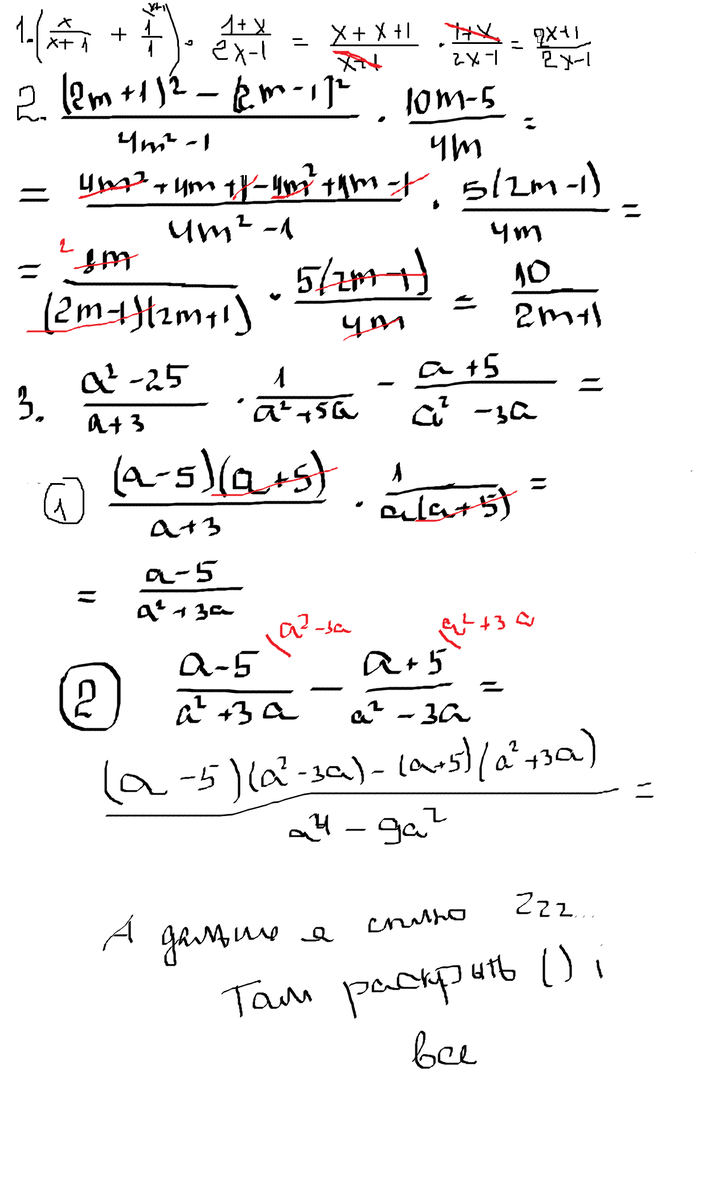 1. (x/(x+1) + 1/1 \x+1) · (1+x)/(2x-1) = (x+x+1)/(x+1) · (1+x)/(2x-1) = (2x+1)/(2x-1)
2. ((2m+1)² - (2m-1)²)/(4m²-1) · (10m-5)/(4m) =
= (4m²+4m+1-4m²+4m-1)/(4m²-1) · 5(2m-1)/(4m) =
= 2 8m/((2m-1)(2m+1)) · 5(2m-1)/(4m) = 10/(2m+1)
3. (a²-25)/(a+3) · 1/(a²+5a) - (a+5)/(a²-3a) =
1 (a-5)(a+5)/(a+3) · 1/(a(a+5)) =
= (a-5)/(a²+3a)
2 (a-5)/(a²+3a) \a²-3a - (a+5)/(a²-3a) \a²+3a =
((a-5)(a²-3a)-(a+5)(a²+3a))/(a⁴-9a²) =
А дальше я сплю Zzz...
Там раскрыть () і
все